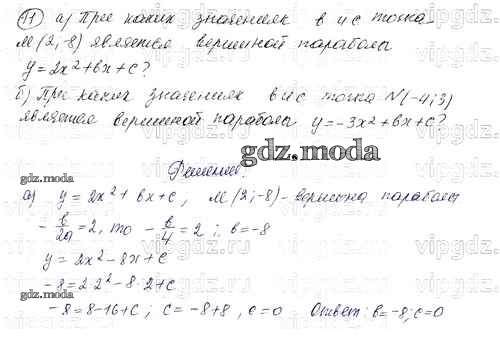 11) а) При каких значениях в и с точка
М(2;-8) является вершиной параболы
y=2x²+вx+c?
б) При каких значениях в и с точка N(-4;3)
является вершиной параболы y=-3x²+вx+c?
gdz.moda
Решение.
а) y=2x²+вx+c, М(2;-8)-вершина параболы
-в/2a=2, то -в/4=2; в=-8
y=2x²-8x+c
gdz.moda
-8=2·2²-8·2+c
-8=8-16+c; c=-8+8, c=0 Ответ: в=-8; c=0